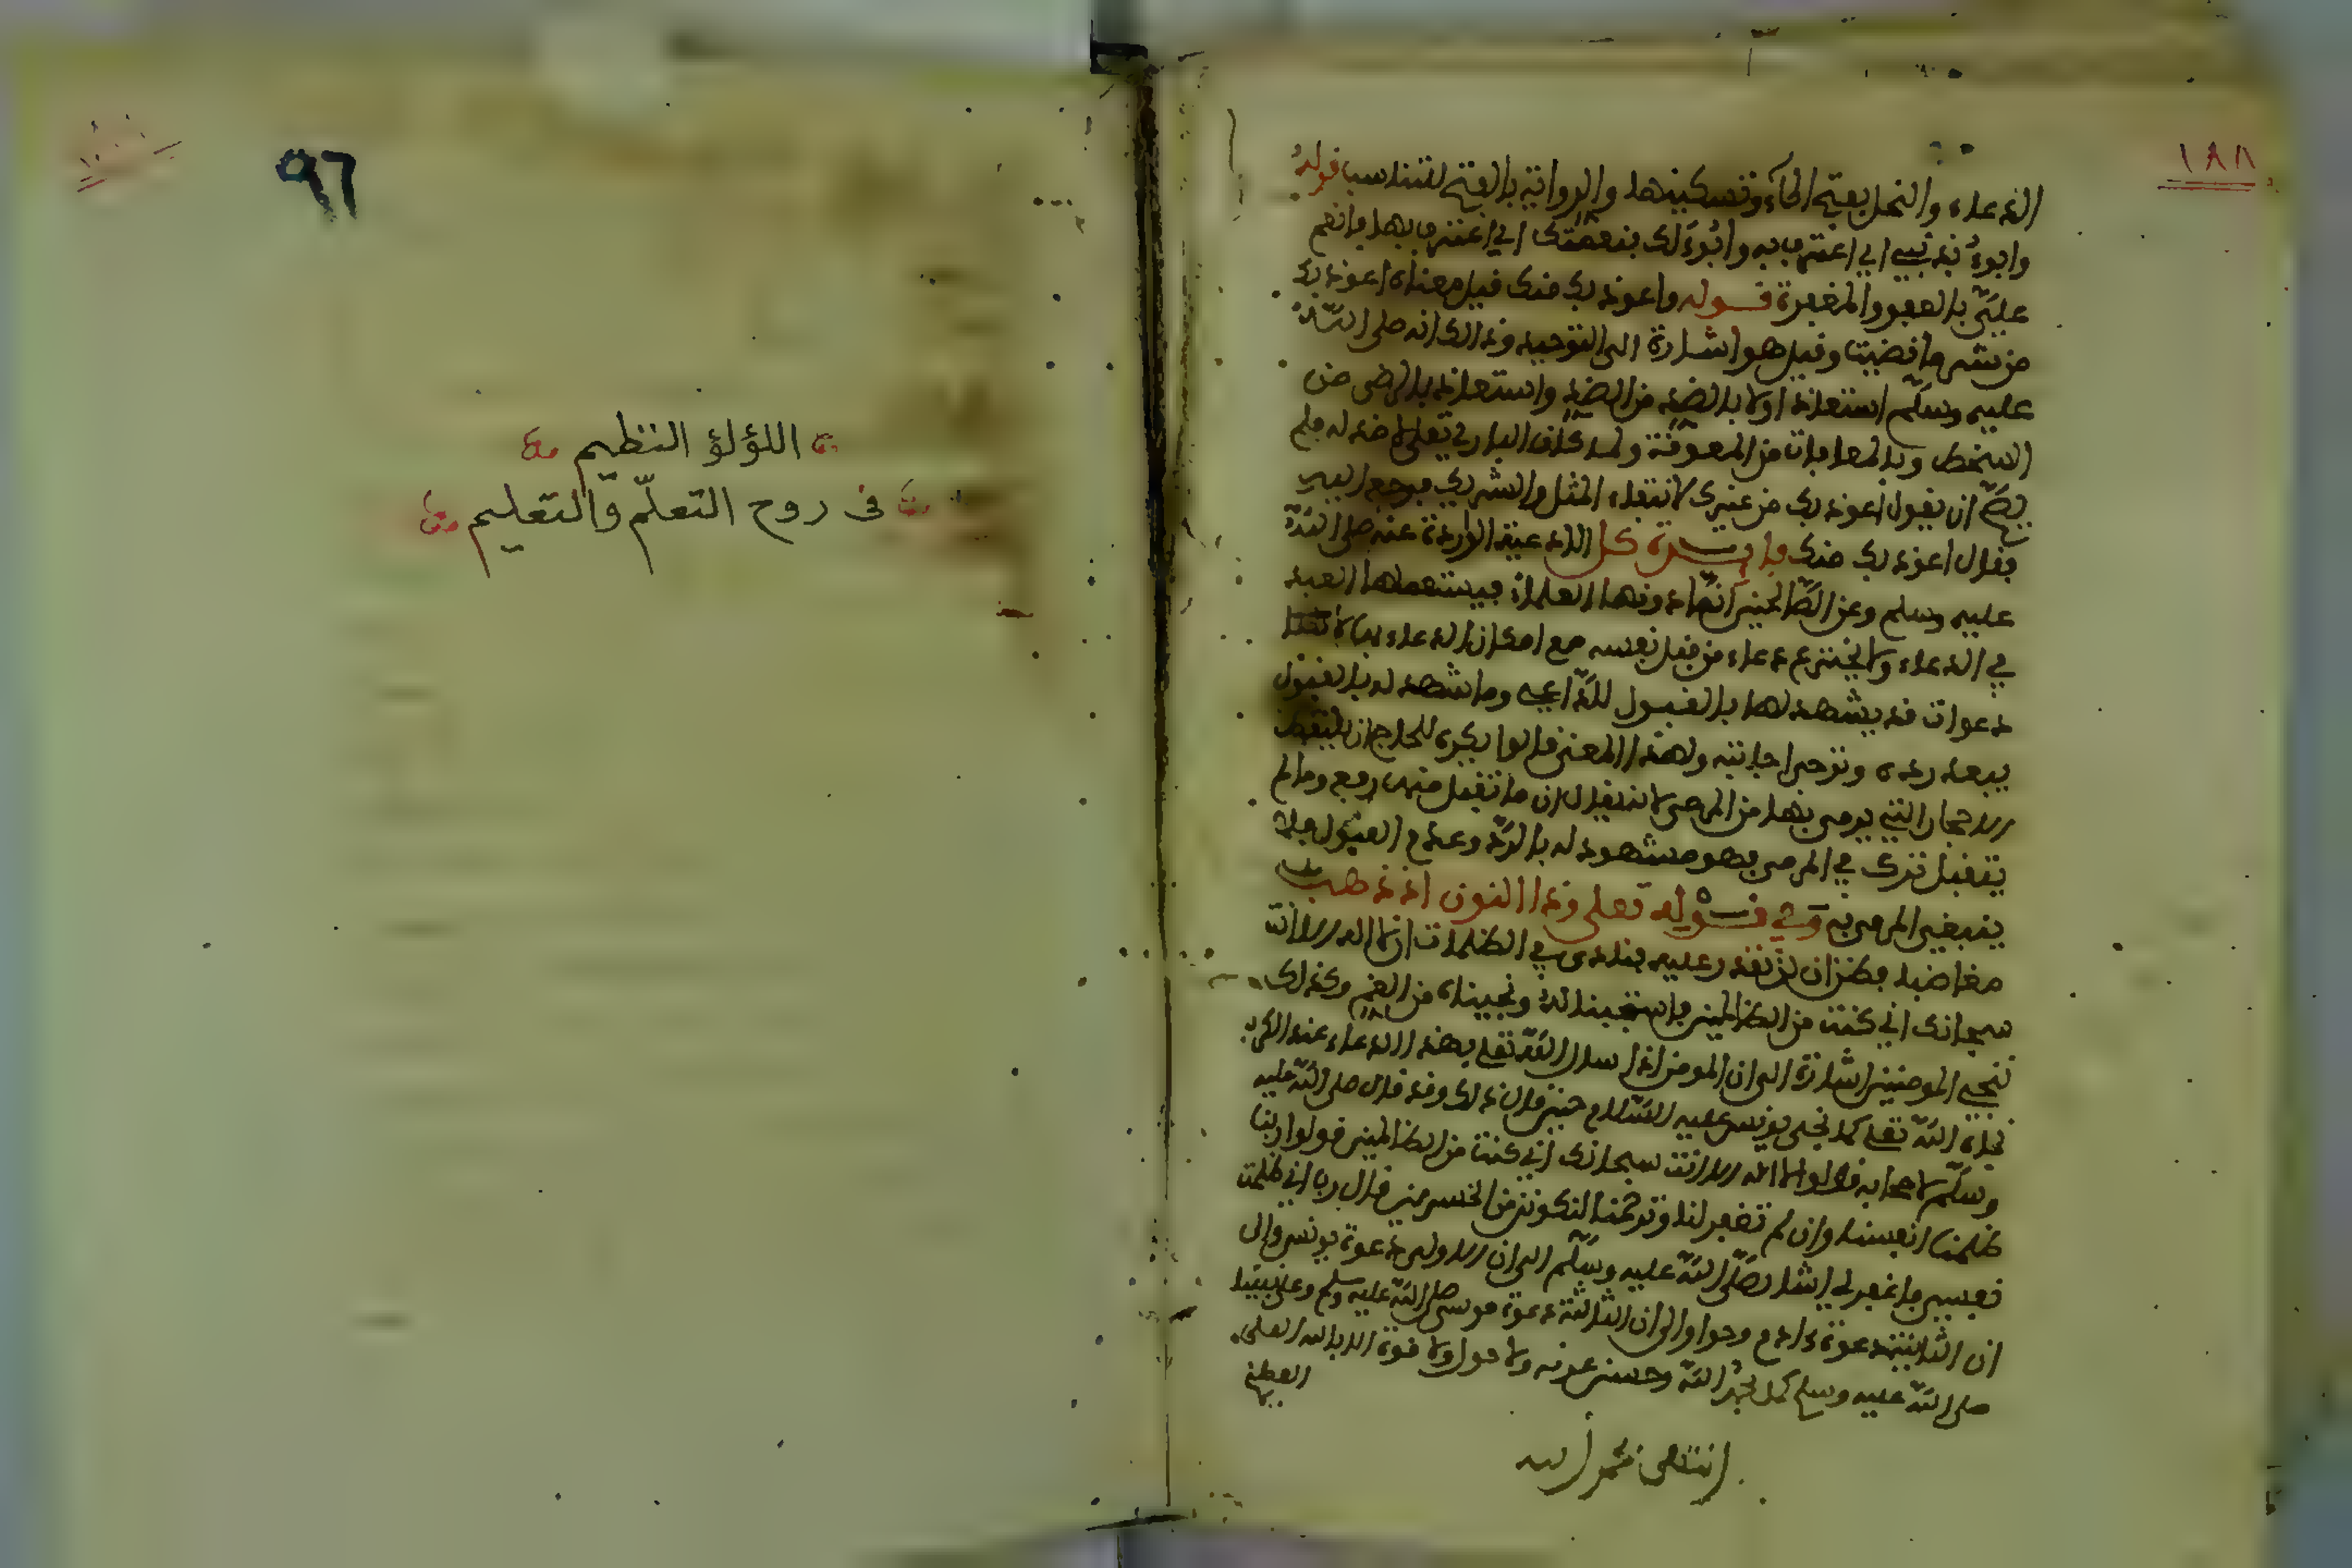 ١٨٨
الدعاء والنحل بفتح الحاء وتسكينها والرواية بالفتح لتتناسب قوله
وابوء بذنبي اي اعترف به وابوء لك بنعمتك اي اعترف بها فانعم
علي بالعفو والمغفرة قوله واعوذ بك منك قيل معناه اعوذ بك
من شر ما قضيت وقيل هو اشارة الى التوحيد وذلك انه صلى الله
عليه وسلم استعاذ اولا بالضد من الضد واستعاذ بالرضى من
السخط وبالمعافات من العقوبة ولما كان الباري تعلى لا ضد له فلم
يصح ان يقول اعوذ بك من غيرك لانتفاء المثل والشريك فرجع اليه
فقال اعوذ بك منك فايدة كل الادعية الواردة عنه صلى الله
عليه وسلم وعن الصالحين انما دونها العلماء فيستعملها العبد
في الدعاء ولا يخترع دعاء من قبل نفسه مع امكان الدعاء
دعوات قد يشهد لها بالقبول للداعي وما شهد له بالقبول
يبعد رده وترجى اجابته ولهذا المعنى قالوا يكره للحاج ان يلتقط
الاحجار التي يرمى بها من المرمى لانه يقال ان ما تقبل منها رفع وما لم
يتقبل ترك في المرمى فهو مشهود له بالرد وعدم القبول فلا
ينبغي الرمي به وفي قوله تعلى وذا النون اذ ذهب
مغاضبا فظن ان لن نقدر عليه فنادى في الظلمات ان لا اله الا انت
سبحانك اني كنت من الظالمين فاستجبنا له ونجيناه من الغم وكذلك
ننجي المومنين اشارة الى ان المومن اذا سال الله تعلى بهذا الدعاء عند الكرب
نجاه الله تعلى كما نجى يونس عليه السلام حين قال ذلك وقد قال صلى الله عليه
وسلم لاصحابه قولوا لا اله الا انت سبحانك اني كنت من الظالمين قولوا ربنا
ظلمنا انفسنا وان لم تغفر لنا وترحمنا لنكونن من الخسرين قال رب اني ظلمت
نفسي فاغفر لي اشار صلى الله عليه وسلم الى ان الاولى دعوة يونس والى
ان الثانية دعوة ءادم وحوا والى ان الثالثة دعوة موسى صلى الله عليه وسلم وعلى نبينا
صلى الله عليه وسلم كمل بحمد الله وحسن عونه ولا حول ولا قوة الا بالله العلي
العظيم
انتهى بحمد الله
٩٦
اللؤلؤ النظيم
فى روح التعلّم والتعليم